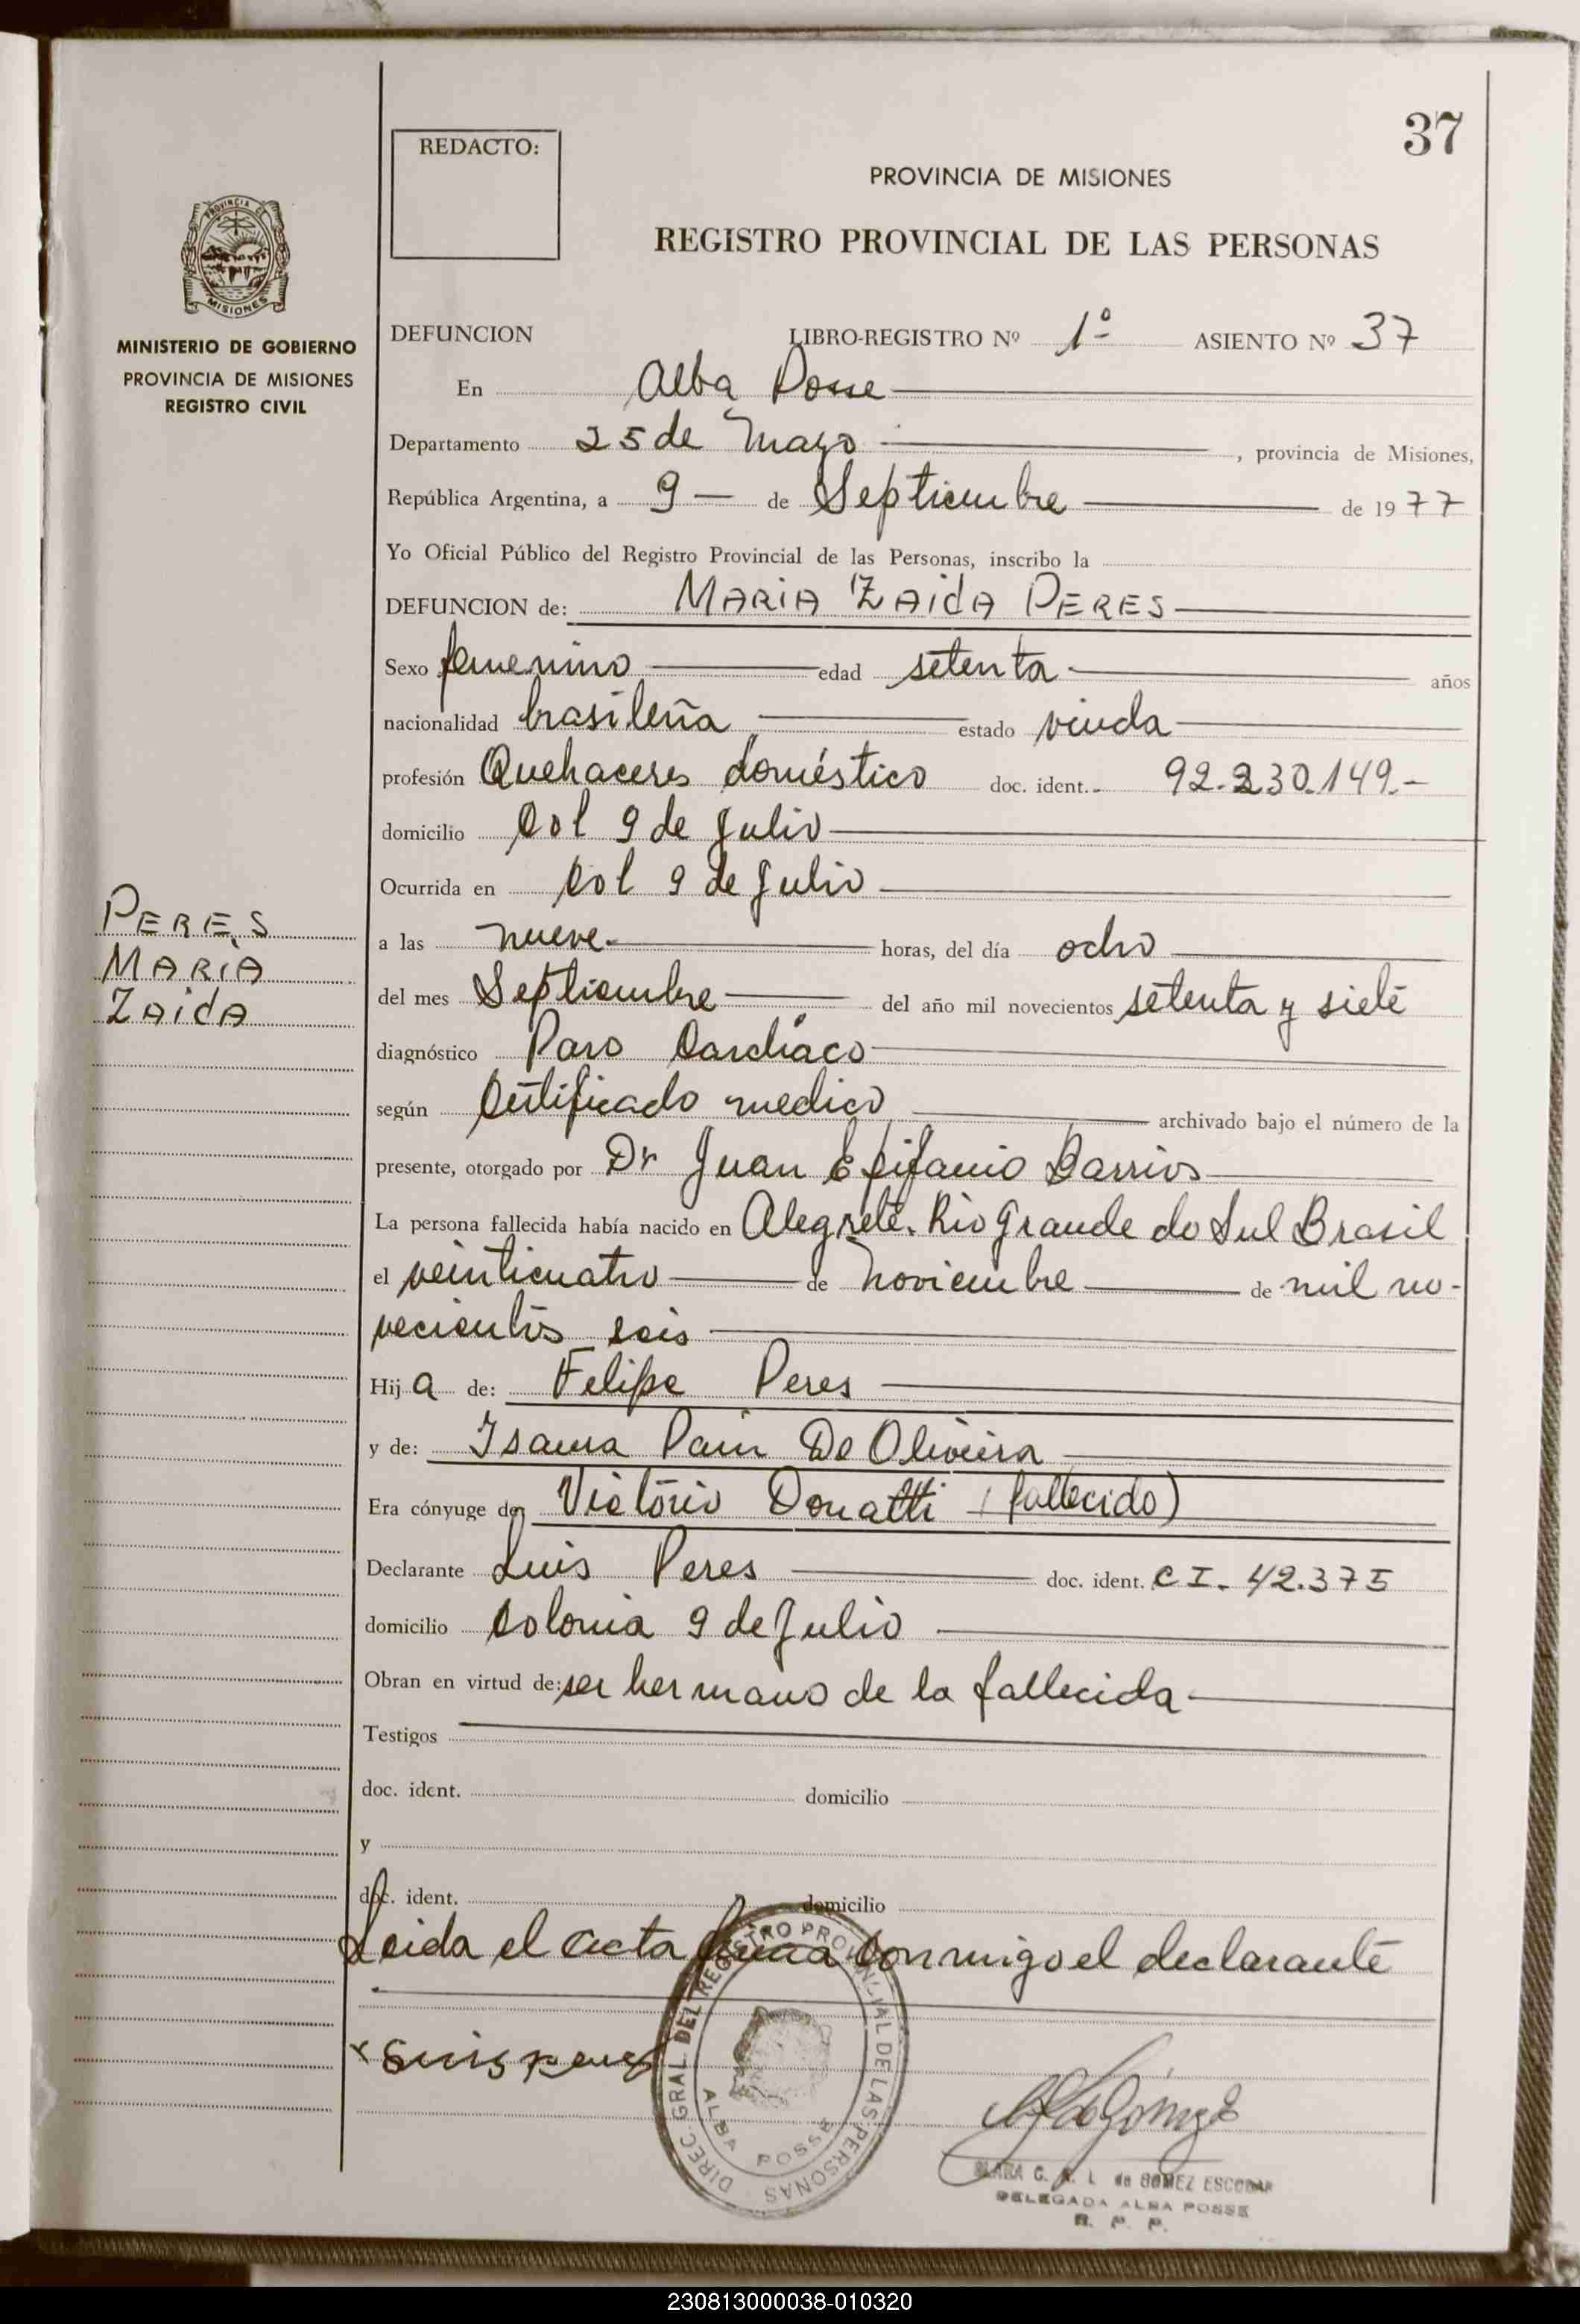 37
REDACTO:
PROVINCIA DE MISIONES
REGISTRO PROVINCIAL DE LAS PERSONAS
PROVINCIA DE
MISIONES
MINISTERIO DE GOBIERNO
PROVINCIA DE MISIONES
REGISTRO CIVIL
DEFUNCION LIBRO-REGISTRO Nº 1º ASIENTO Nº 37
En Alba Posse
Departamento 25 de Mayo , provincia de Misiones,
República Argentina, a 9 de Septiembre de 1977
Yo Oficial Público del Registro Provincial de las Personas, inscribo la
DEFUNCION de: MARIA ZAIDA PERES
Sexo femenino edad setenta años
nacionalidad brasileña estado viuda
profesión Quehaceres doméstico doc. ident. 92.230.149.-
domicilio Col 9 de Julio
Ocurrida en Col 9 de Julio
PERES
MARIA
ZAIDA
a las nueve horas, del día ocho
del mes Septiembre del año mil novecientos setenta y siete
diagnóstico Paro Cardíaco
según Certificado medico archivado bajo el número de la
presente, otorgado por Dr Juan Epifanio Barrios
La persona fallecida había nacido en Alegrete. Rio Grande do Sul Brasil
el veinticuatro de noviembre de mil no-
vecientos seis
Hija de: Felipe Peres
y de: Isaura Pain De Oliveira
Era cónyuge de Victorio Donatti (fallecido)
Declarante Luis Peres doc. ident. C I. 42.375
domicilio Colonia 9 de Julio
Obran en virtud de: ser hermano de la fallecida
Testigos
doc. ident. domicilio
y
doc. ident. domicilio
Leida el acta firma conmigo el declarante
DIREC. GRAL. DEL REGISTRO PROVINCIAL DE LAS PERSONAS
ALBA POSSE
de GOMEZ ESCOBAR
DELEGADA ALBA POSSE
R. P. P.
230813000038-010320